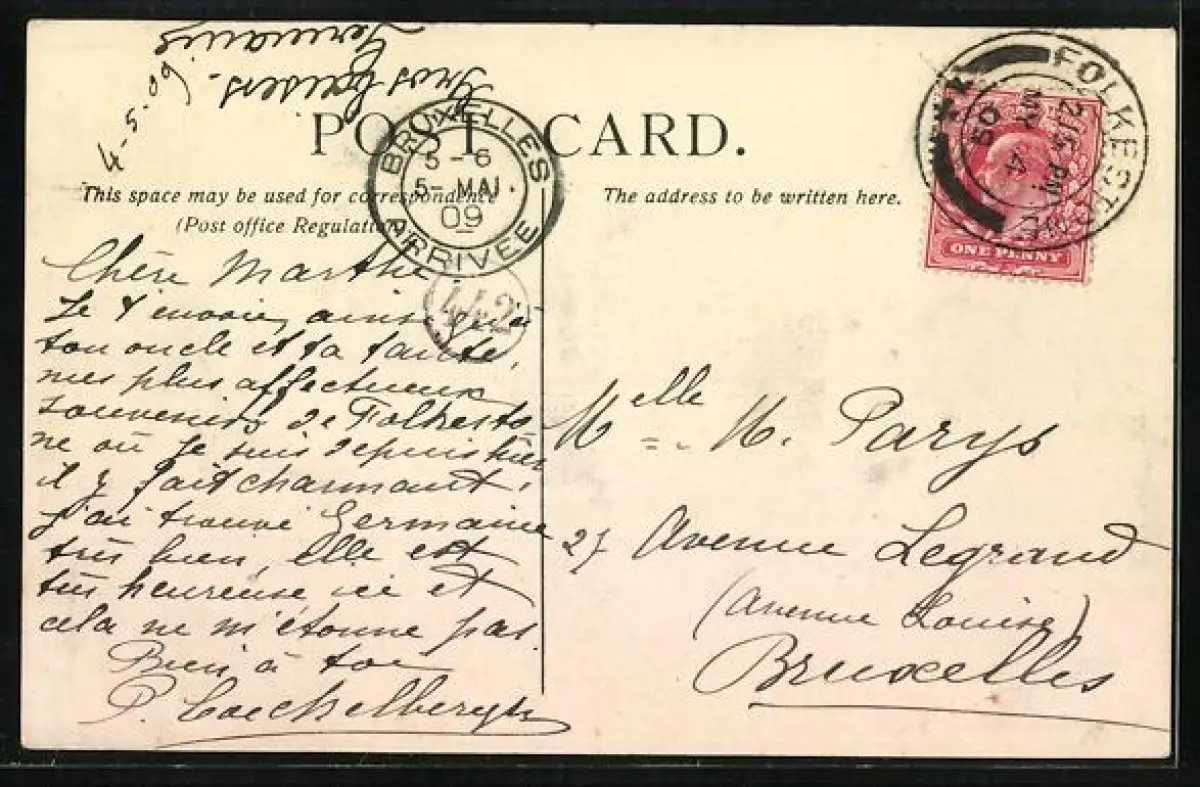 Gros baisers.
Germaine
4-5-09
POST CARD.
This space may be used for correspondence
(Post office Regulation).
The address to be written here.
BRUXELLES
5-6
5-MAI.
09
ARRIVEE
442
FOLKESTONE
2 15 PM
MY 4
09
ONE PENNY
Chère Marthe.
Je t'envoie, ainsi qu'à
ton oncle et ta tante,
mes plus affectueux
souvenirs de Folkesto
ne où je suis depuis hier
il y fait charmant.
J'ai trouvé Germaine
très bien, elle est
très heureuse ici et
cela ne m'étonne pas.
Bien à toi
P.
Melle M. Parys
27 Avenue Legrand
(Avenue Louise)
Bruxelles